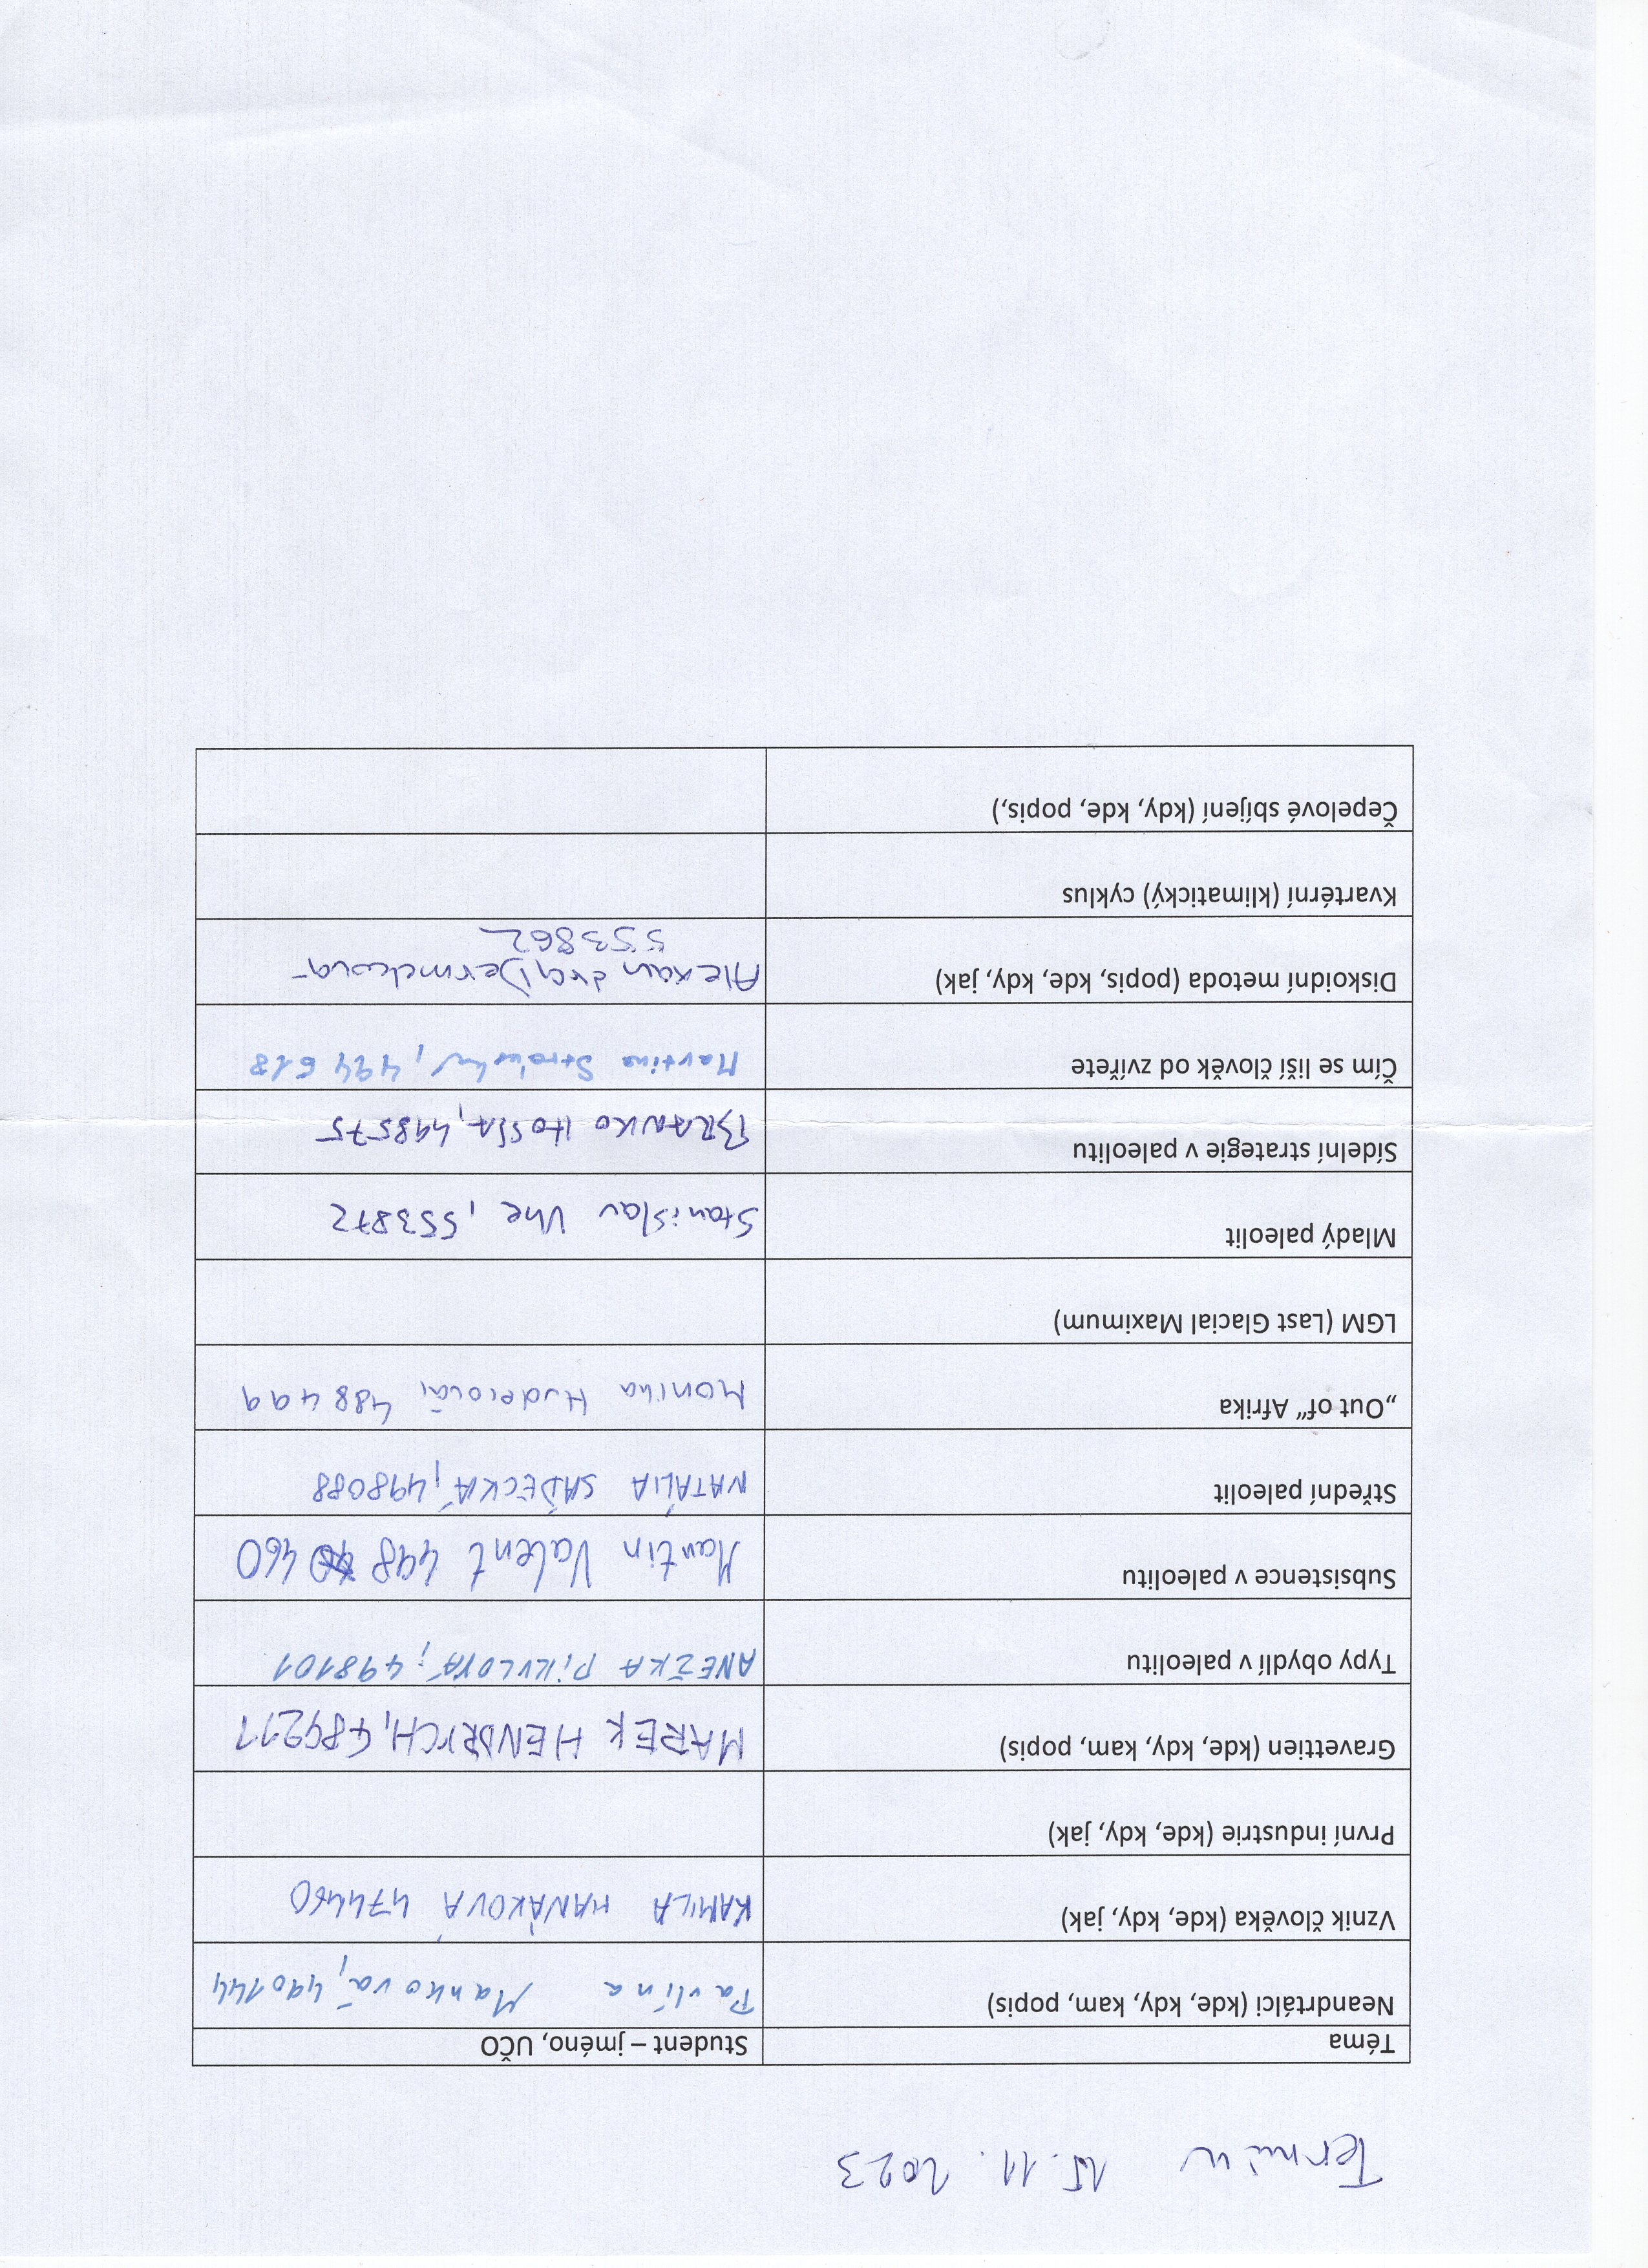 Termín 15. 11. 2023
Téma Student – jméno, UČO
Neandrtálci (kde, kdy, kam, popis) Pavlína Manková, 490144
Vznik člověka (kde, kdy, jak) KAMILA HANÁKOVÁ 474460
První industrie (kde, kdy, jak)
Gravettien (kde, kdy, kam, popis) MAREK HENDRYCH, 489211
Typy obydlí v paleolitu ANEŽKA PIKULOVÁ, 498101
Subsistence v paleolitu Martin Valent 498 460
Střední paleolit NATÁLIA SÁDECKÁ, 498088
„Out of“ Afrika Monika Hudecová, 488499
LGM (Last Glacial Maximum)
Mladý paleolit Stanislav Uhe, 553872
Sídelní strategie v paleolitu BRANKO HOSSA, 498575
Čím se liší člověk od zvířete Martina
Diskoidní metoda (popis, kde, kdy, jak) Alexandra
553862
Kvartérní (klimatický) cyklus
Čepelové sbíjení (kdy, kde, popis,)